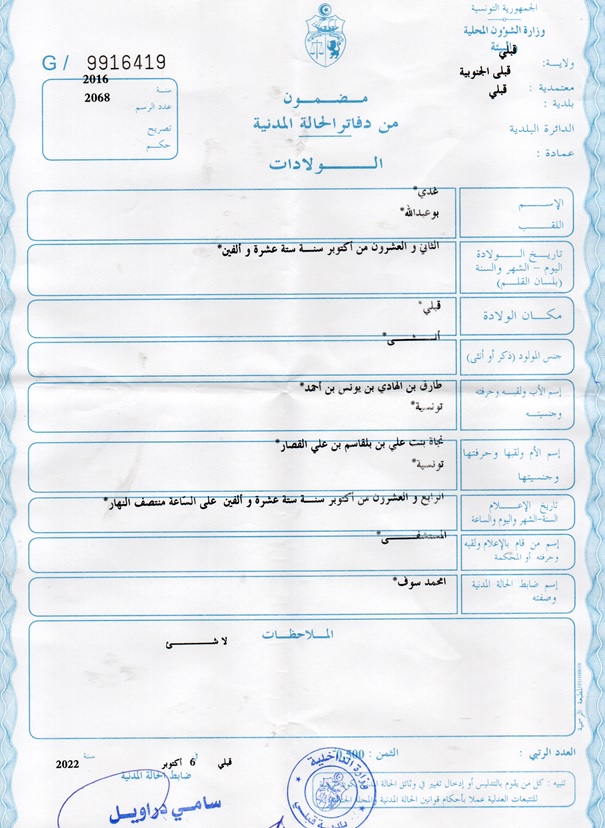 الجمهورية التونسية
وزارة الشؤون المحلية
والبيئة
ولاية: قبلي
معتمدية: قبلي الجنوبية
بلدية: قبلي
الدائرة البلدية
عمادة:
G / 9916419
سنة 2016
عدد الرسم 2068
تصريح
حكم
مضمون
من دفاتر الحالة المدنية
الولادات
الإسم غدي*
اللقب بوعبدالله*
تاريخ الولادة
اليوم - الشهر والسنة
(بلسان القلم)
الثاني و العشرون من أكتوبر سنة ستة عشرة و ألفين*
مكان الولادة قبلي*
جنس المولود (ذكر أو أنثى) أنثى*
إسم الأب ولقبه وحرفته
وجنسيته
طارق بن الهادي بن يونس بن أحمد*
تونسية*
إسم الأم ولقبها وحرفتها
وجنسيتها
نجاة بنت علي بن بلقاسم بن علي القصار*
تونسية*
تاريخ الإعلام
السنة-الشهر واليوم والساعة
الرابع و العشرون من أكتوبر سنة ستة عشرة و ألفين على الساعة منتصف النهار*
إسم من قام بالإعلام ولقبه
وحرفته أو المحكمة
المستشفى*
إسم ضابط الحالة المدنية
وصفته
امحمد سوف*
الملاحظات
لا شئ
المطبعة الرسمية
العدد الرتبي:
الثمن: 0,500
قبلي في 6 أكتوبر سنة 2022
ضابط الحالة المدنية
سامي دراويل
تنبيه: كل من يقوم بالتدليس أو إدخال تغيير في وثائق الحالة
للتتبعات العدلية عملا بأحكام قوانين الحالة المدنية والمجلة
وزارة الداخلية
بلدية قبلي